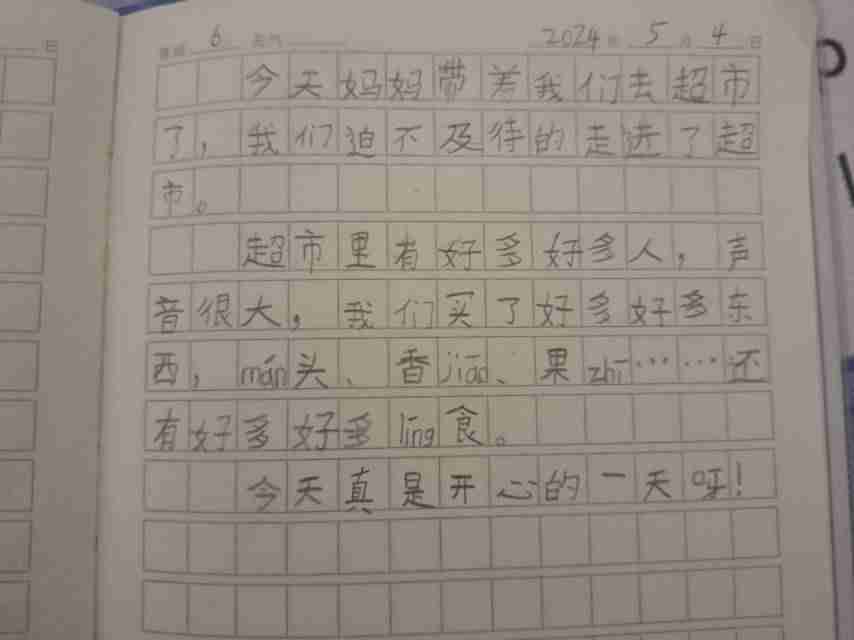 星期 6 天气 2024 年 5 月 4 日
今天妈妈带着我们去超市
了，我们迫不及待的走进了超
市。
超市里有好多好多人，声
音很大，我们买了好多好多东
西，mán头、香jiāo、果zhī……还
有好多好多líng食。
今天真是开心的一天呀！
日